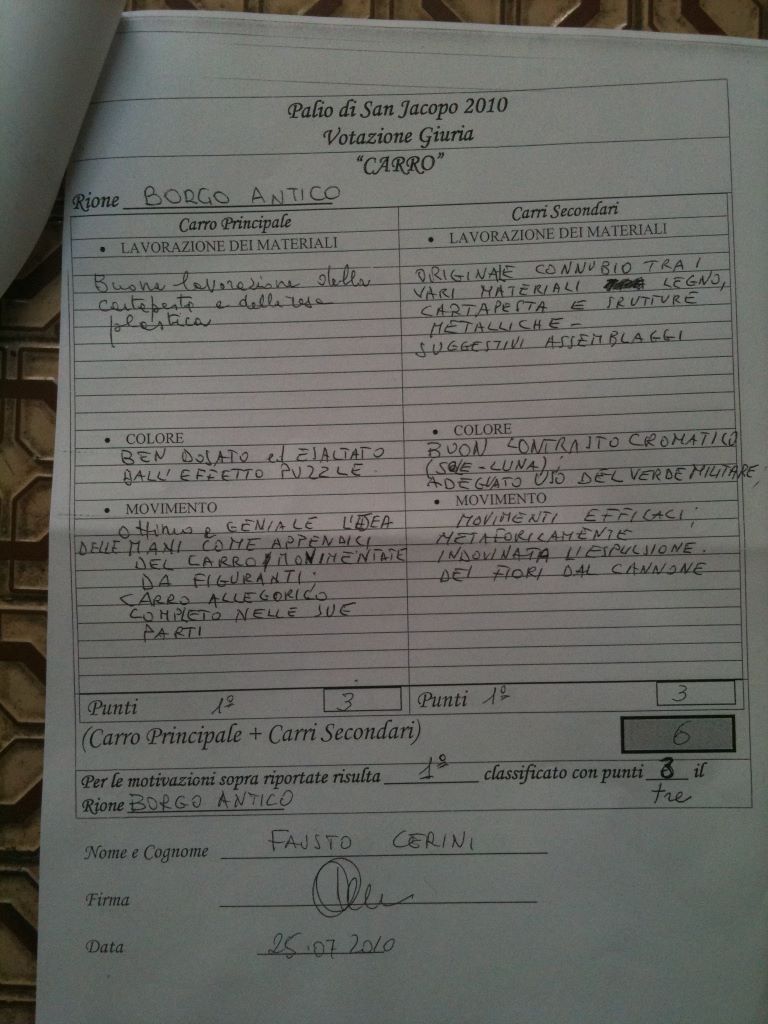 Palio di San Jacopo 2010
Votazione Giuria
"CARRO"
Rione BORGO ANTICO
Carro Principale
• LAVORAZIONE DEI MATERIALI
Buona lavorazione della
cartapesta e della resa
plastica
• COLORE
BEN DOSATO ed ESALTATO
DALL'EFFETTO PUZZLE
• MOVIMENTO
Ottimo e GENIALE L'IDEA
DELLE MANI COME APPENDICI
DEL CARRO MOVIMENTATE
DA FIGURANTI;
CARRO ALLEGORICO
COMPLETO NELLE SUE
PARTI
Punti 1º 3
Carri Secondari
• LAVORAZIONE DEI MATERIALI
ORIGINALE CONNUBIO TRA I
VARI MATERIALI LEGNO,
CARTAPESTA E SRUTTURE
METALLICHE -
SUGGESTIVI ASSEMBLAGGI
• COLORE
BUON CONTRASTO CROMATICO
(SOLE-LUNA);
ADEGUATO USO DEL VERDE MILITARE;
• MOVIMENTO
MOVIMENTI EFFICACI;
METAFORICAMENTE
INDOVINATA L'ESPULSIONE
DEI FIORI DAL CANNONE
Punti 1º 3
(Carro Principale + Carri Secondari) 6
Per le motivazioni sopra riportate risulta 1º classificato con punti 3 il
tre
Rione BORGO ANTICO
Nome e Cognome FAUSTO CERINI
Firma
Data 25.07 2010